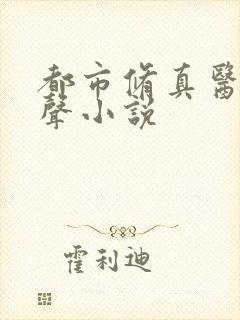 都市脩真醫
聲小説
霍利迪